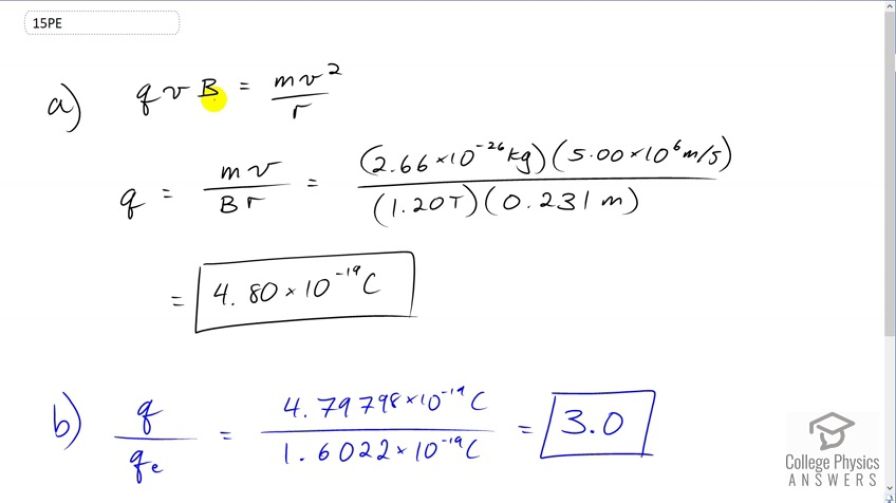 15PE
a) qvB = mv²/r
q = mv/Br = (2.66×10⁻²⁶kg)(5.00×10⁶m/s)/(1.20T)(0.231m)
= 4.80×10⁻¹⁹C
b) q/qₑ = 4.79798×10⁻¹⁹C/1.6022×10⁻¹⁹C = 3.0
College Physics
ANSWERS